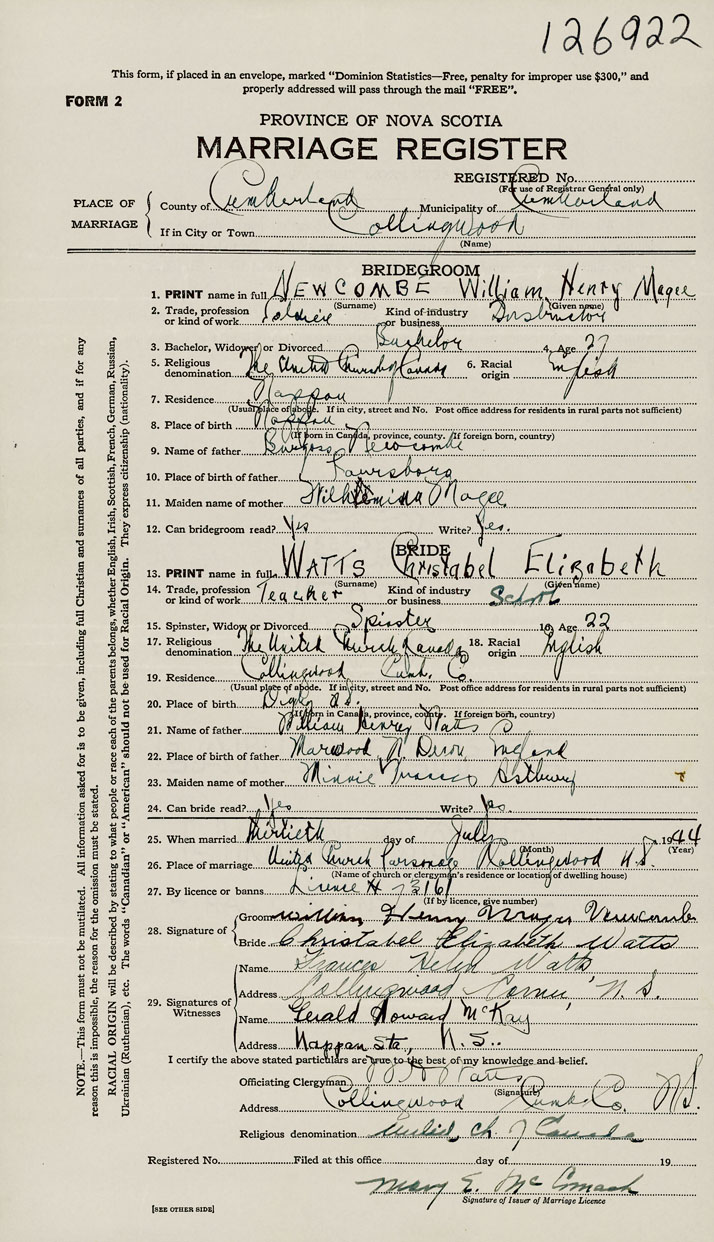 126922
This form, if placed in an envelope, marked "Dominion Statistics—Free, penalty for improper use $300," and
properly addressed will pass through the mail "FREE".
FORM 2
PROVINCE OF NOVA SCOTIA
MARRIAGE REGISTER
REGISTERED No.
(For use of Registrar General only)
PLACE OF MARRIAGE
County of Cumberland Municipality of Cumberland
If in City or Town Collingwood
(Name)
BRIDEGROOM
1. PRINT name in full NEWCOMBE William Henry Magee
(Surname) (Given name)
2. Trade, profession or kind of work Soldier Kind of industry or business Instructor
3. Bachelor, Widower or Divorced Bachelor 4. Age 27
5. Religious denomination The United Church of Canada 6. Racial origin English
7. Residence Nappan
(Usual place of abode. If in city, street and No. Post office address for residents in rural parts not sufficient)
8. Place of birth Nappan
(If born in Canada, province, county. If foreign born, country)
9. Name of father Burgess Newcombe
10. Place of birth of father
11. Maiden name of mother Wilhemina Magee
12. Can bridegroom read? Yes Write? Yes.
BRIDE
13. PRINT name in full WATTS Christabel Elizabeth
(Surname) (Given name)
14. Trade, profession or kind of work Teacher Kind of industry or business School
15. Spinster, Widow or Divorced Spinster 16. Age 22
17. Religious denomination The United Church of Canada 18. Racial origin English
19. Residence Collingwood Cumb. Co.
(Usual place of abode. If in city, street and No. Post office address for residents in rural parts not sufficient)
20. Place of birth Digby N.S.
(If born in Canada, province, county. If foreign born, country)
21. Name of father William Henry Watts
22. Place of birth of father Marwood N. Devon England
23. Maiden name of mother Minnie Asthury
24. Can bride read? Yes Write? Yes.
25. When married thirtieth day of July 1944
(Month) (Year)
26. Place of marriage United Church Parsonage Collingwood N.S.
(Name of church or clergyman's residence or location of dwelling house)
27. By licence or banns License # 73161
(If by licence, give number)
28. Signature of
Groom William Henry Magee Newcombe
Bride Christabel Elizabeth Watts
29. Signatures of Witnesses
Name Frances Helen Watts
Address Collingwood Corner, N.S.
Name Gerald Howard McKay
Address Nappan Sta., N.S..
I certify the above stated particulars are true to the best of my knowledge and belief.
Officiating Clergyman Watts
(Signature)
Address Collingwood Cumb. Co. N.S.
Religious denomination United Ch. of Canada
Registered No. Filed at this office day of 19
Mary E. McCormack
Signature of Issuer of Marriage Licence
[SEE OTHER SIDE]
NOTE.—This form must not be mutilated. All information asked for is to be given, including full Christian and surnames of all parties, and if for any
reason this is impossible, the reason for the omission must be stated.
RACIAL ORIGIN will be described by stating to what people or race each of the parents belongs, whether English, Irish, Scottish, French, German, Russian,
Ukrainian (Ruthenian), etc. The words "Canadian" or "American" should not be used for Racial Origin. They express citizenship (nationality).